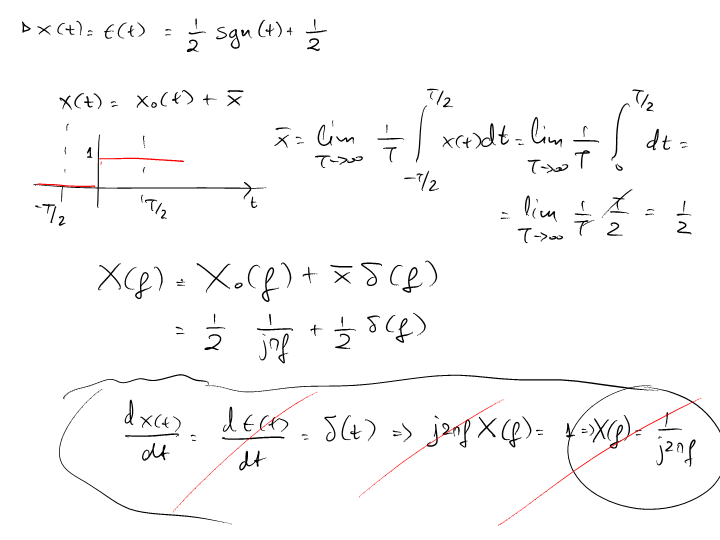 ▷ x(t) = ε(t) = 1/2 sgn(t) + 1/2
x(t) = x₀(t) + x̄
x̄ = lim T→∞ 1/T ∫_{-T/2}^{T/2} x(t)dt = lim T→∞ 1/T ∫_0^{T/2} dt =
1
-T/2 T/2 t
= lim T→∞ 1/T T/2 = 1/2
X(f) = X₀(f) + x̄ δ(f)
= 1/2 1/jπf + 1/2 δ(f)
dx(t)/dt = dε(t)/dt = δ(t) => j2πf X(f) = 1 => X(f) = 1/j2πf